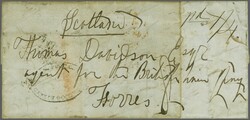 Scotland
pd 1/4
Thomas Davidson Esqr
agent for the British Linen Compy
Forres